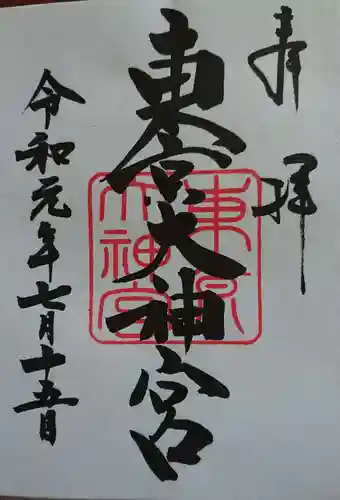 奉拝
東京大神宮
令和元年七月十五日
東京大神宮